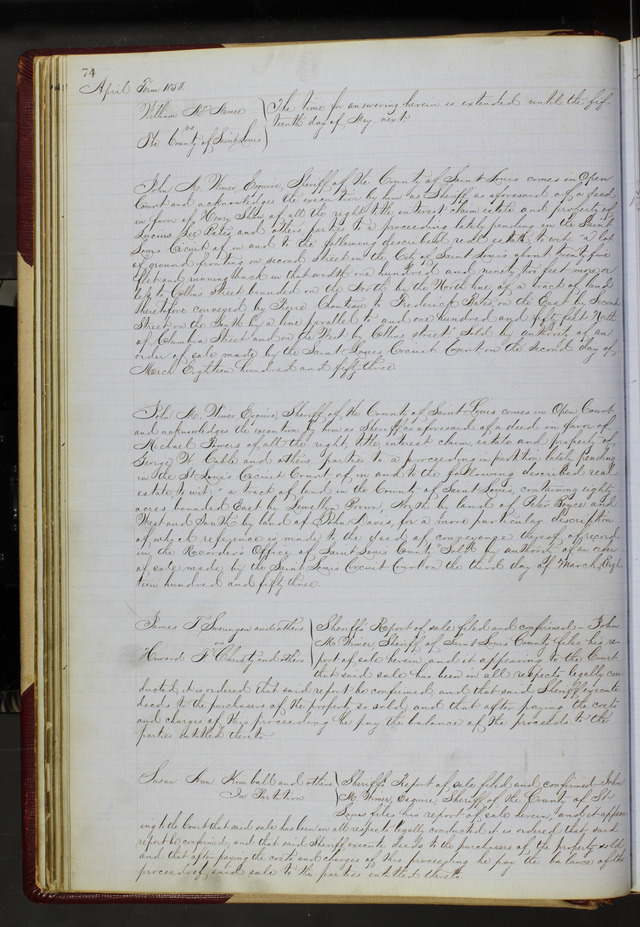 74
April Term 1853.
The time for answering herein is extended until the fif-
vs
teenth day of May next
The County of Saint Louis
John M. Wimer, Esquire, Sheriff of the County of Saint Louis comes in Open
Court and acknowledges the execution by him as Sheriff as aforesaid of a deed
in favor of Henry of all the right title interest claim estate and property of
Bates, and others parties to a proceeding lately pending in the Saint
Louis Circuit of in and to the following described real estate to wit "a lot
of ground fronting on second street in the City of Saint Louis about twenty five
feet and running back in that width one hundred and ninety two feet more or
less to Collins Street bounded on the North by the North line of a tract of land
heretofore conveyed by Pierre Chouteau to Frederick Bates, on the East by Second
Street on the South by a line parallel to and one hundred and fifty feet North
of Columbia Street and on the West by Collins street" Sold by authority of an
order of sale made by the Saint Louis Circuit Court on the second day of
March Eighteen hundred and fifty three
John M. Wimer Esquire, Sheriff of the County of Saint Louis comes in Open Court
and acknowledges the execution by him as Sheriff as aforesaid of a deed in favor of
Michael Powers of all the right, title interest claim, estate and property of
George W Cable and others parties to a proceeding in partition lately pending
in the St Louis Circuit Court of in and to the following described real
estate to wit: "a tract of land in the County of Saint Louis, containing eighty
acres bounded East by Lewellyn Brown, North by land of Peter Boyce and
West and South by land of John Maers, for a more particular description
of which reference is made to the deed of conveyance thereof of record
in the Recorder's Office of Saint Louis County" Sold by authority of an order
of sale made by the Saint Louis Circuit Court on the third day of March Eigh-
teen hundred and fifty three.
James T Swearingen and others
Sheriff's Report of sale filed and confirmed - John
vs
M. Wimer Sheriff of Saint Louis County files his re-
Howard F Christy and others
port of sale herein, and it appearing to the Court
that said sale has been in all respects legally con-
ducted, it is ordered that said report be confirmed, and that said Sheriff execute
deeds to the purchasers of the property so sold, and that after paying the costs
and charges of this proceeding he pay the balance of the proceeds to the
parties entitled thereto
Susan Ann Kimball and others
Sheriff's Report of sale filed and confirmed John
In Partition
M. Wimer, Esquire, Sheriff of the County of St
Louis files his report of sale herein, and it appear-
ing to the Court that said sale has been in all respects legally conducted it is ordered that said
report be confirmed, and that said Sheriff execute deeds to the purchasers of the property sold,
and that after paying the costs and charges of this proceeding he pay the balance of the
proceeds of said sale to the parties entitled thereto